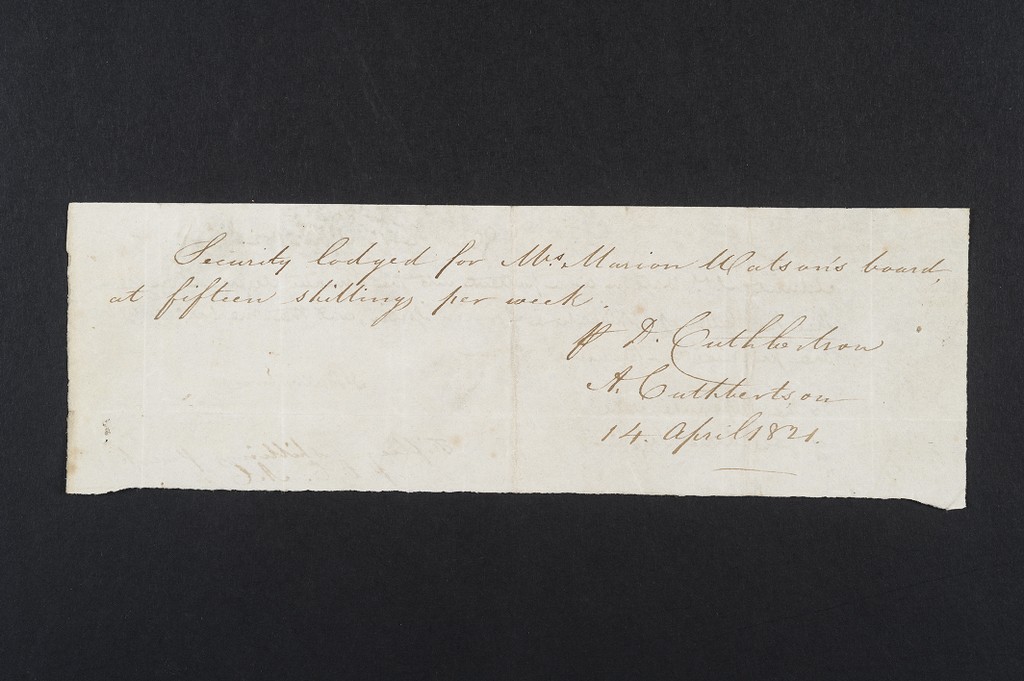 Security lodged for Mrs. Marion Watson's board,
at fifteen shillings per week.
p D. Cuthbertson
A. Cuthbertson
14. April 1821.